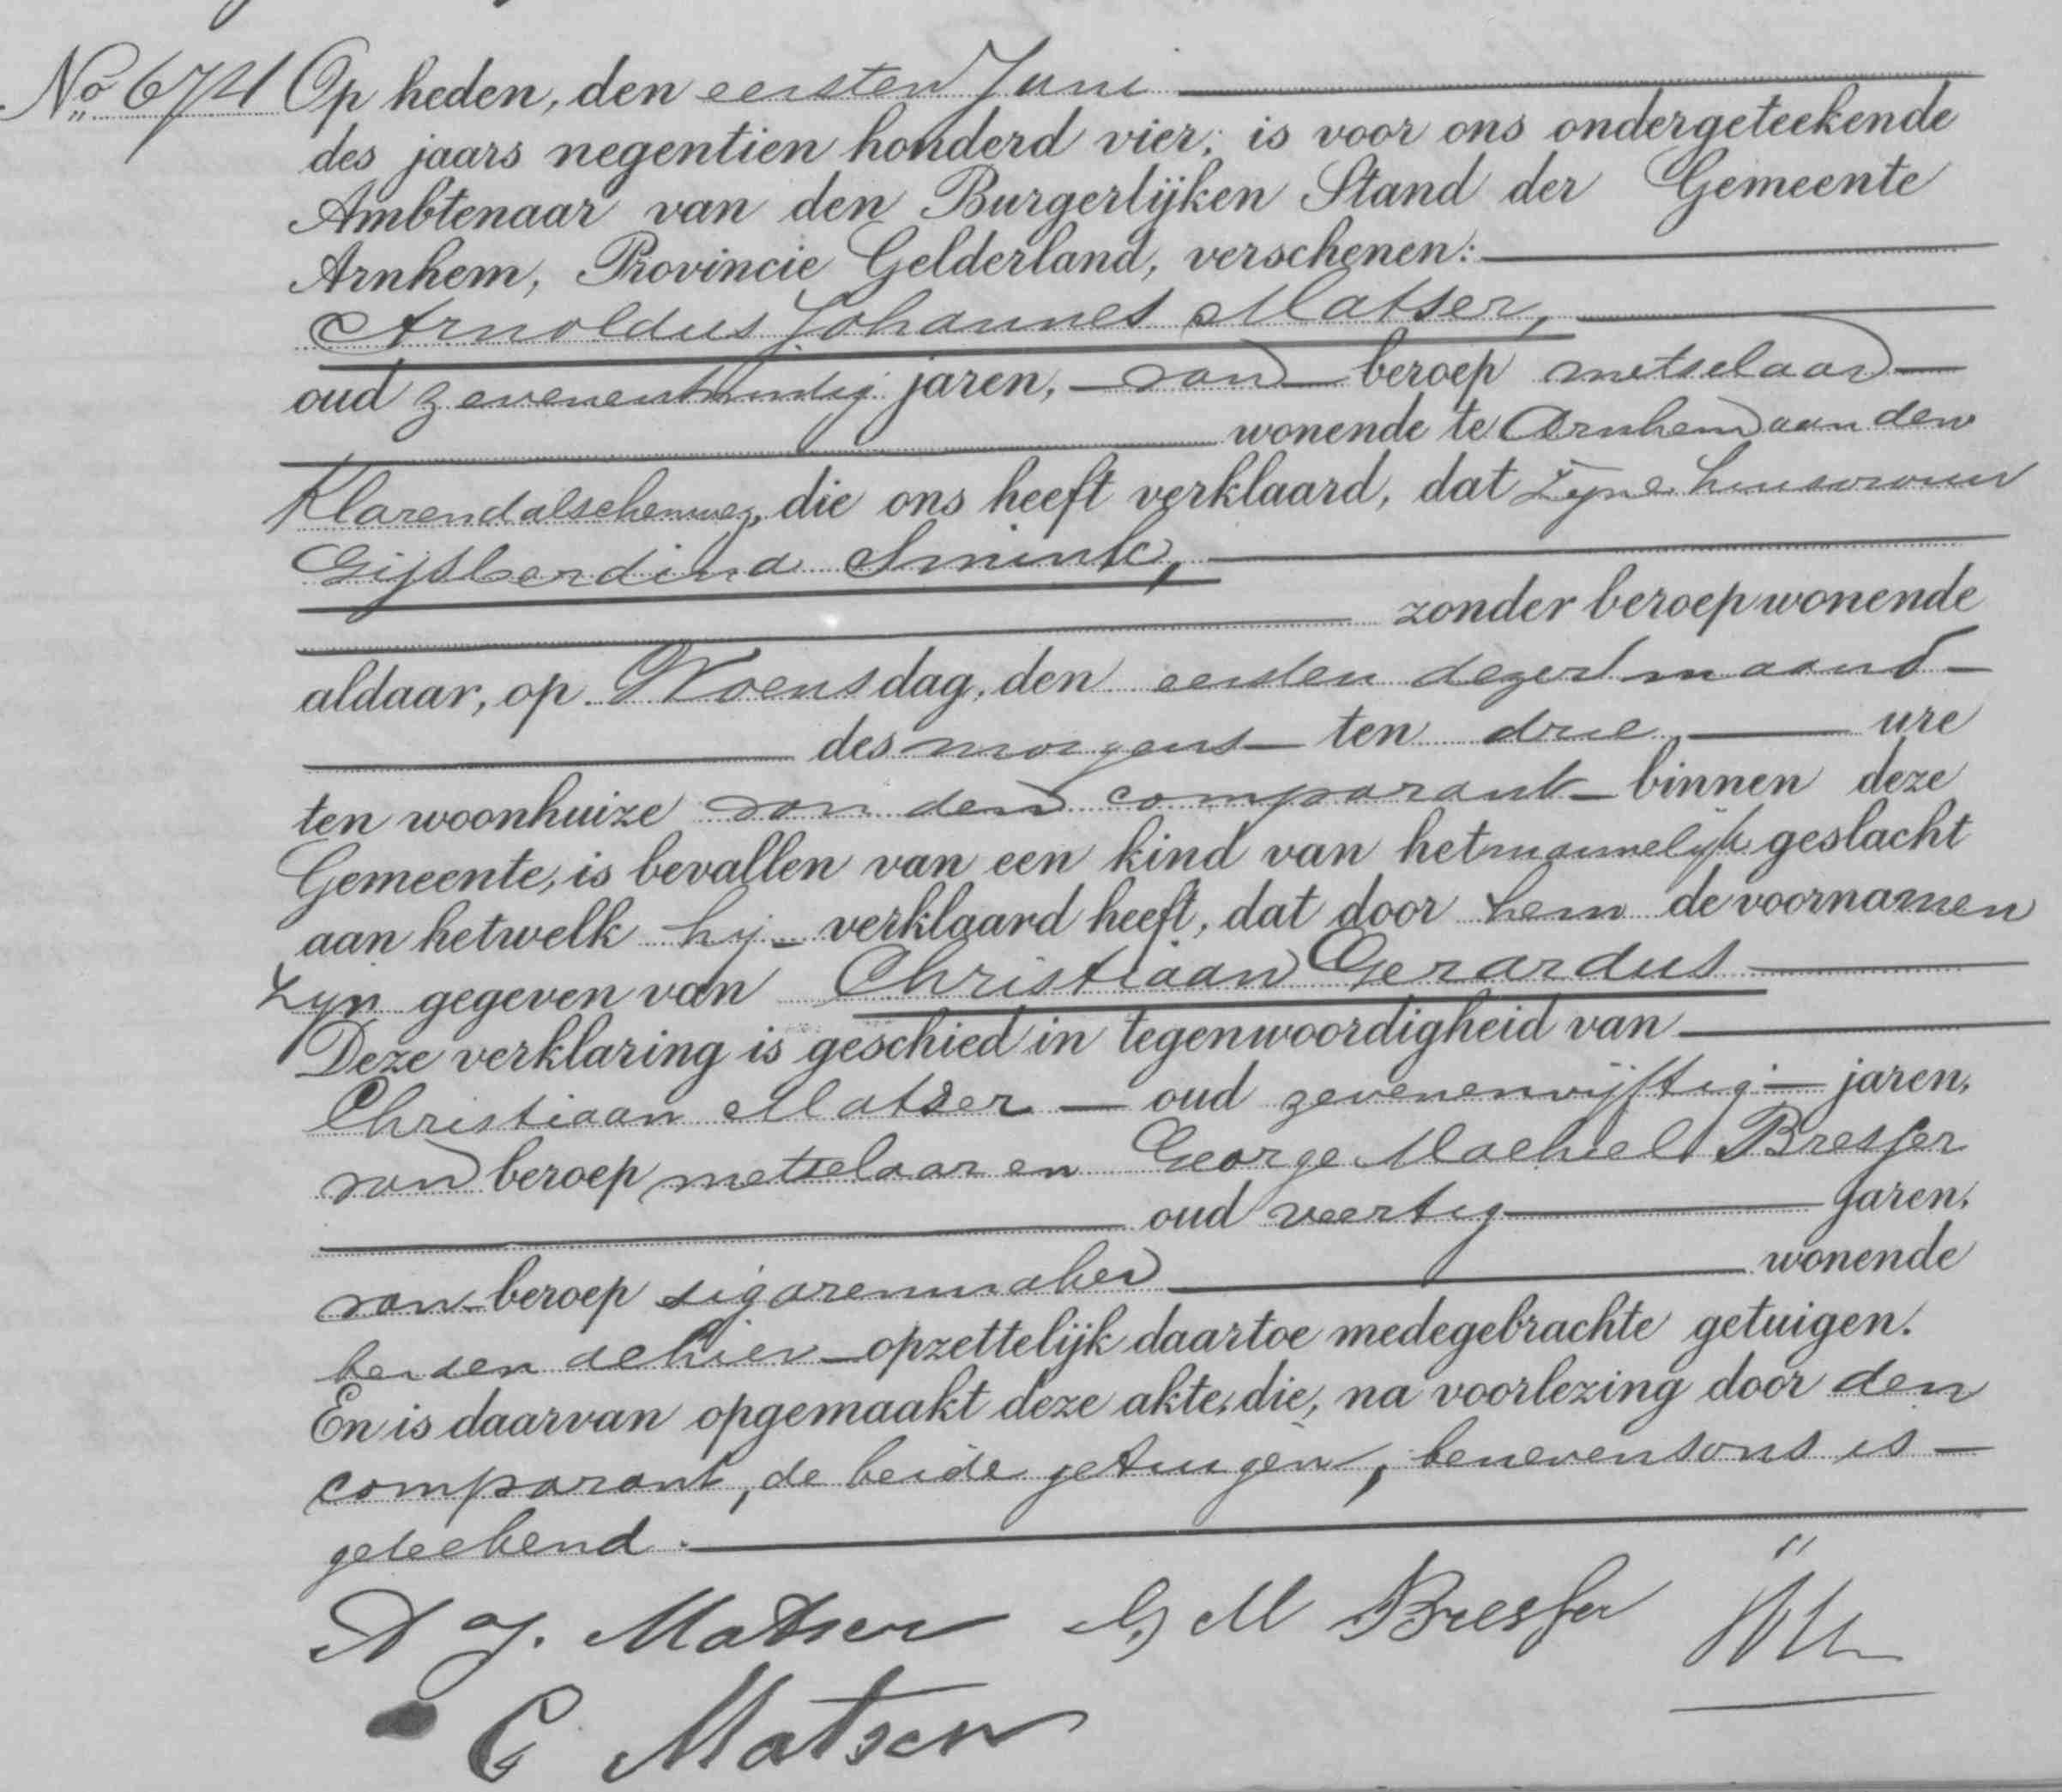 No 674 Op heden, den eersten Juni
des jaars negentien honderd vier, is voor ons ondergeteekende
Ambtenaar van den Burgerlijken Stand der Gemeente
Arnhem, Provincie Gelderland, verschenen:
Arnoldus Johannes Matser,
oud zevenentwintig jaren, van beroep metselaar
wonende te Arnhem aan den
Klarendalschenweg, die ons heeft verklaard, dat zijne huisvrouw
Gijsberdina Smink,
zonder beroep wonende
aldaar, op Woensdag, den eersten dezer maand
des morgens ten drie ure
ten woonhuize van den comparant binnen deze
Gemeente, is bevallen van een kind van het mannelijk geslacht
aan hetwelk hij verklaard heeft, dat door hem de voornamen
zijn gegeven van Christiaan Gerardus
Deze verklaring is geschied in tegenwoordigheid van
Christiaan Matser oud zevenenvijftig jaren,
van beroep metselaar en George Machiel Bresser
oud veertig jaren,
van beroep sigarenmaker wonende
beiden alhier opzettelijk daartoe medegebrachte getuigen.
En is daarvan opgemaakt deze akte, die, na voorlezing door den
comparant, de beide getuigen, benevens ons is
geteekend.
A J. Matser G M Bresser
C Matser